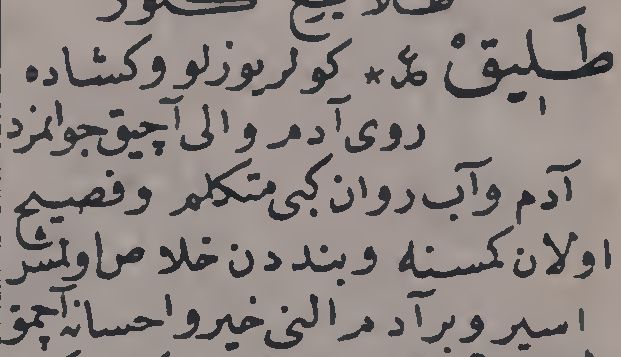 طَلِيقْ ع * كولر يوزلو وكشاده
روى آدم والى آچيق جوانمرد
آدم وآب روان كبى متكلم وفصيح
اولان كمسنه وبنددن خلاص اولمش
اسير وبر آدم النى خير واحسانه آچمق